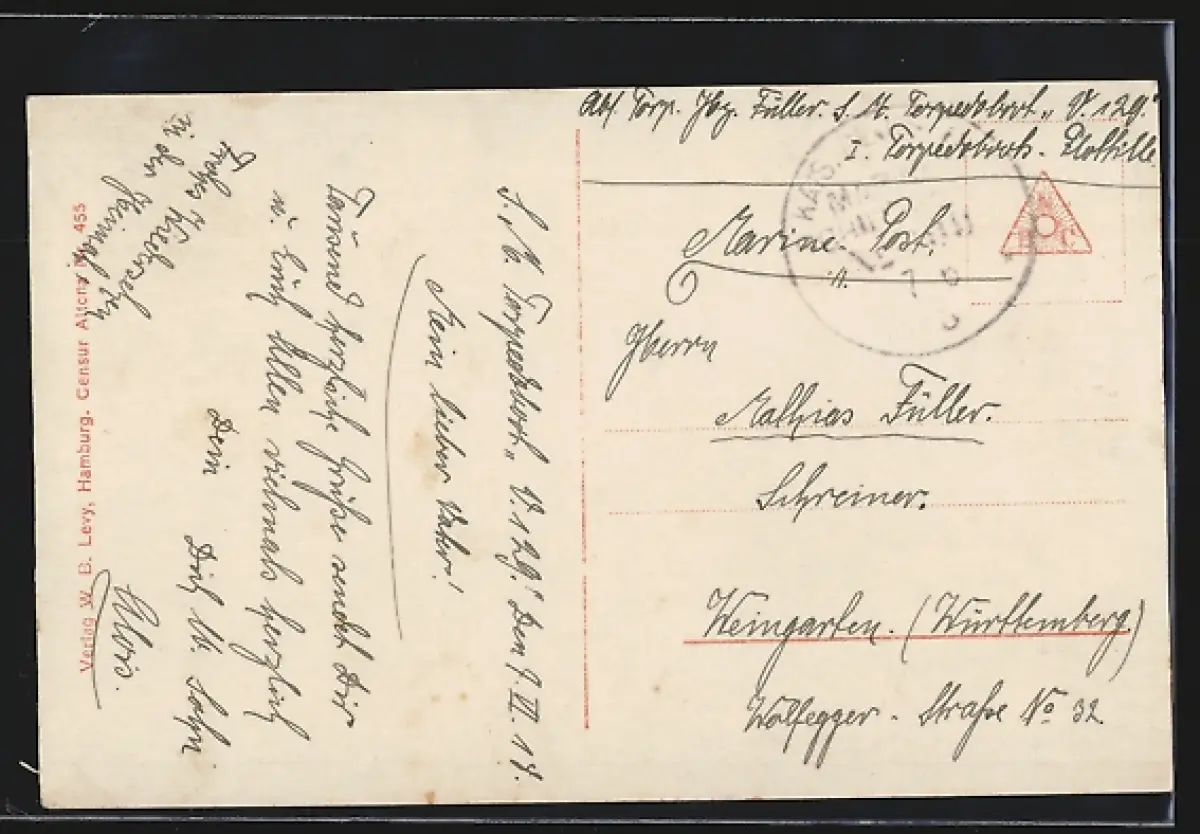 Abs. Torp. Hzg. Füller. S. M. Torpedoboot „V. 129."
I. Torpedoboots-Flottille
Marine-Post.
Herrn
Mathias Füller.
Schreiner.
Weingarten. (Württemberg)
Wolfegger-Straße No 32
KAIS.
S. M. Torpedoboot „V. 129." Den 7. VI. 17.
Mein lieber Vater!
Tausend herzliche Grüße sendet Dir
u. Euch Allen vielmals herzlich
Dein Dich lb. Sohn
Alois.
Frohes Wiedersehn
in der Heimat
Verlag W. B. Levy, Hamburg. Censur Altona Nr. 455